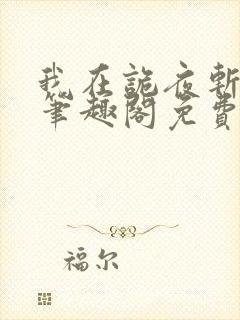 我在詭夜斬
筆趣閣免費
福尔